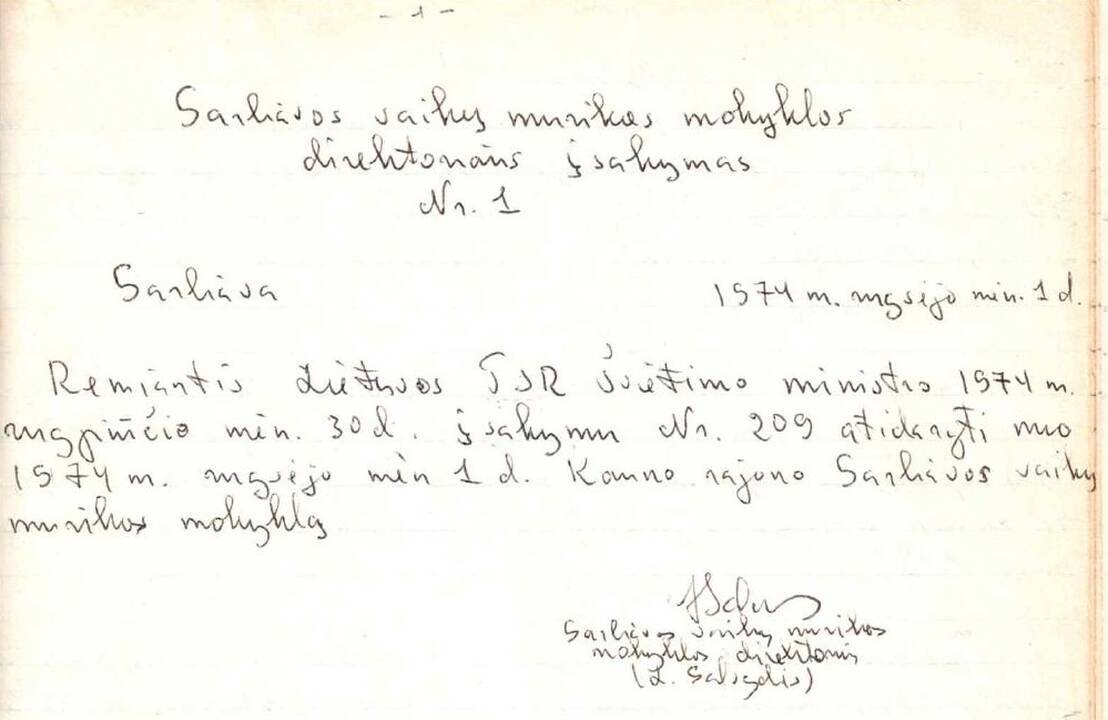 - 1 -
Garliavos vaikų muzikos mokyklos
direktoriaus įsakymas
Nr. 1
Garliava
1974 m. rugsėjo mėn. 1 d.
Remiantis Lietuvos TSR Švietimo ministro 1974 m.
rugpiučio mėn. 30 d. įsakymu Nr. 209 atidaryti nuo
1974 m. rugsėjo mėn 1 d. Kauno rajono Garliavos vaikų
muzikos mokyklą
Garliavos vaikų muzikos
mokyklos direktorius
(L.